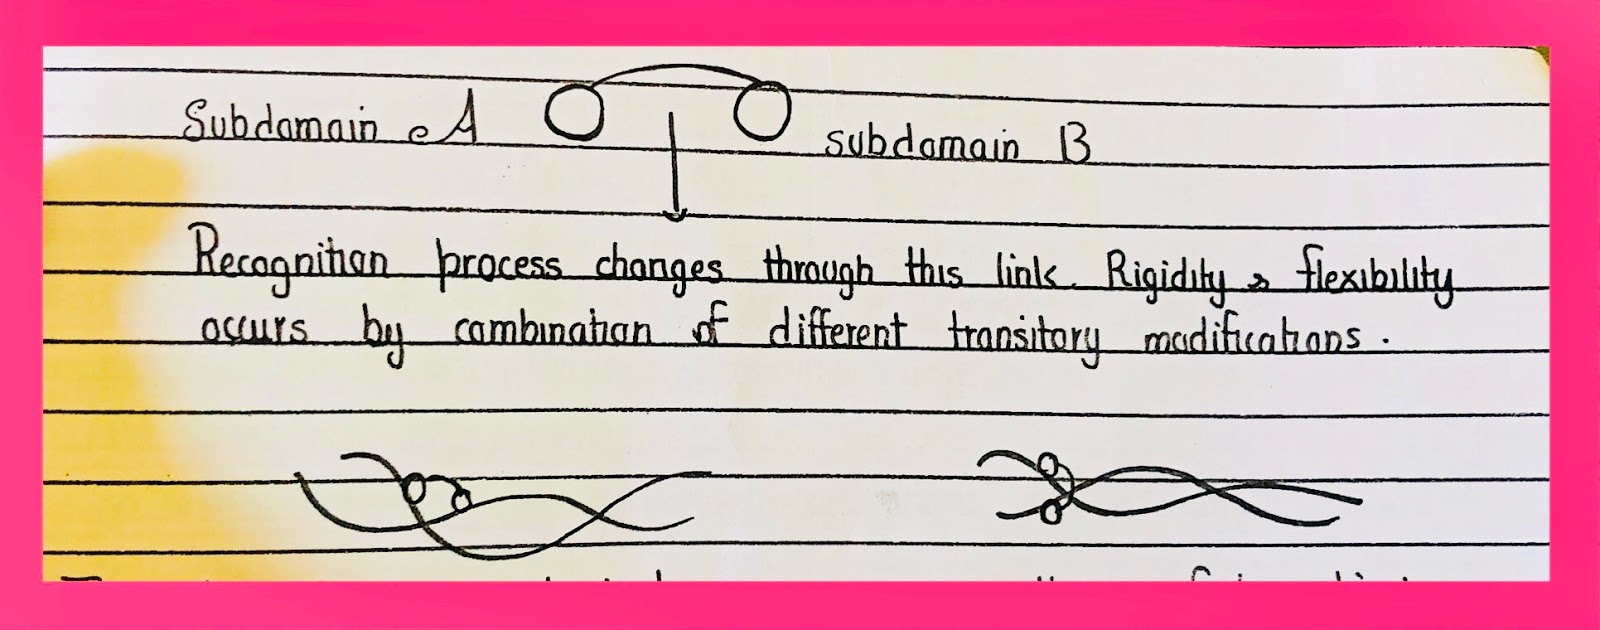 Subdomain A subdomain B
Recognition process changes through this link. Rigidity & flexibility
occurs by combination of different transitory modifications.